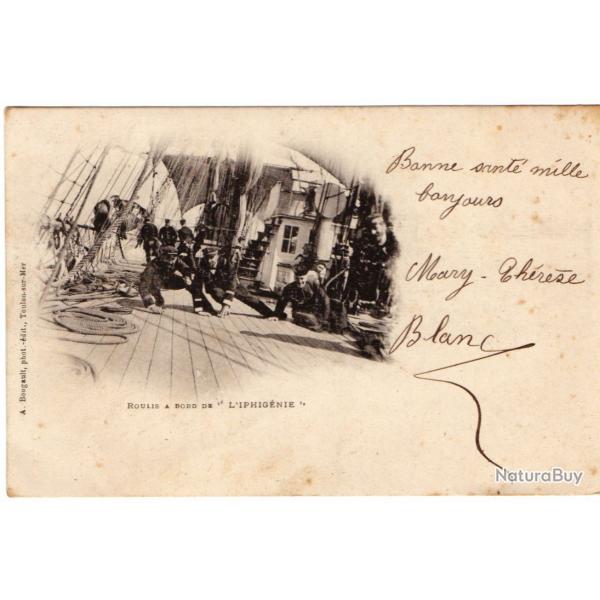 Bonne santé mille
bonjours
Mary - Thérèse
Blanc
A. Bougault, phot.-édit., Toulon-sur-Mer
ROULIS A BORD DE "L'IPHIGÉNIE"
NaturaBuy